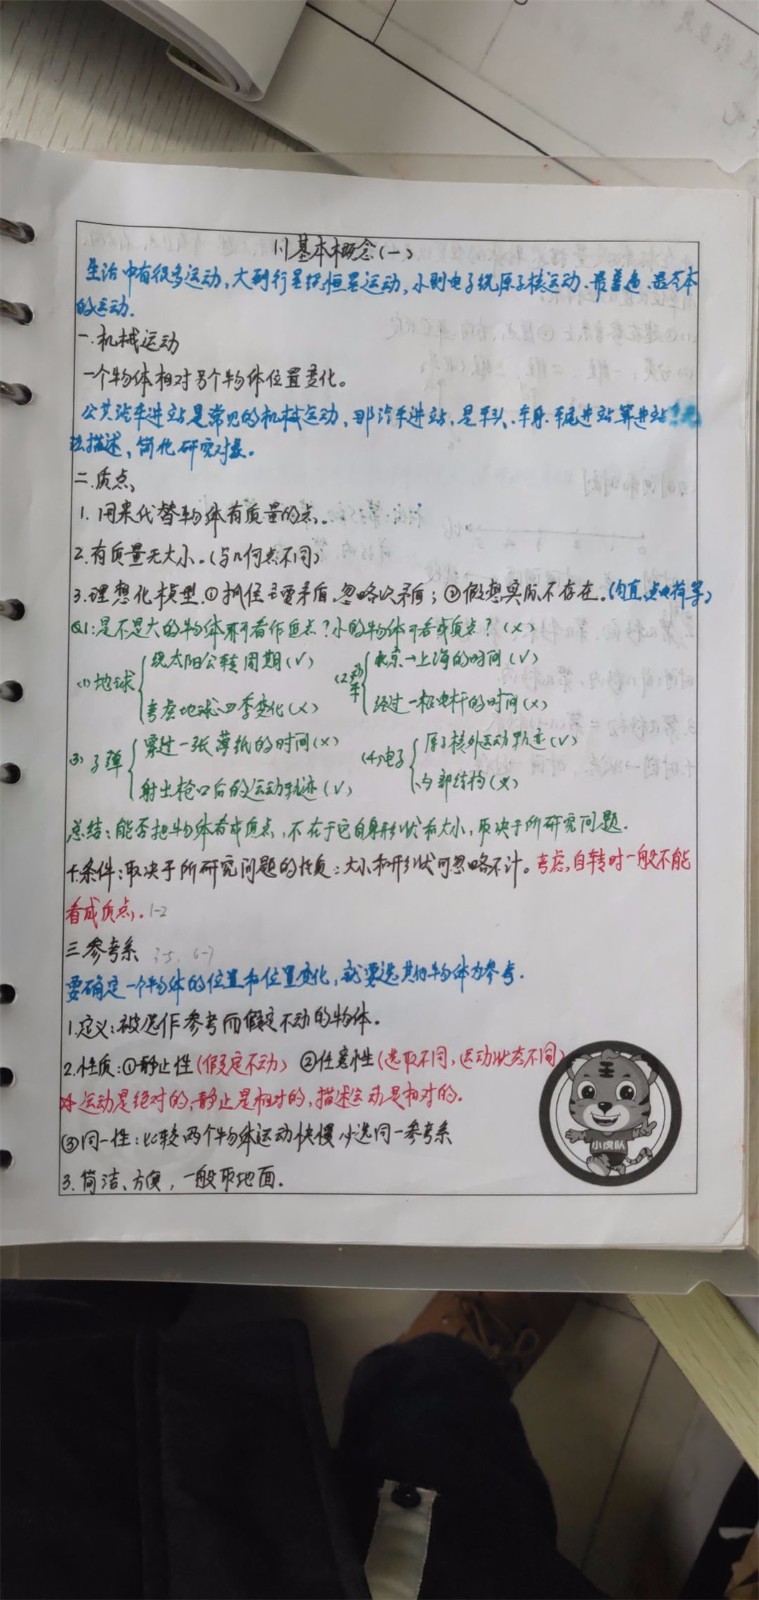 1.1基本概念(一)
生活中有很多运动,大到行星绕恒星运动,小则电子绕原子核运动.最普遍.最基本
的运动.
一.机械运动
一个物体相对另个物体位置变化。
公共汽车进站是常见的机械运动,那汽车进站,是车头.车身.车尾进站算进站?无
法描述,简化研究对象。
二.质点
1.用来代替物体有质量的点.
2.有质量无大小。(与几何点不同)
3.理想化模型.①抓住主要矛盾忽略次矛盾;②假想实际不存在。(匀直,点电荷等)
Q1:是不是大的物体不可看作质点?小的物体可看成质点?(×)
(1)地球 绕太阳公转周期(√) (2)火车 北京→上海的时间(√)
考虑地球四季变化(×) 经过一根电杆的时间(×)
(3)子弹 穿过一张薄纸的时间(×) (4)电子 原子核外运动轨迹(√)
射出枪口后的运动轨迹(√) 内部结构(×)
总结:能否把物体看成质点,不在于它自身形状和大小,取决于所研究问题.
4.条件:取决于所研究问题的性质:大小和形状可忽略不计。考虑,自转时一般不能
看成质点,.1-2
三.参考系 6-7
要确定一个物体的位置和位置变化,就要选其他物体为参考.
1.定义:被选作参考而假定不动的物体.
2.性质:①静止性(假定不动) ②任意性(选取不同,运动状态不同)
运动是绝对的,静止是相对的,描述运动是相对的.
③同一性:比较两个物体运动快慢必选同一参考系
3.简洁、方便,一般取地面.
小虎队